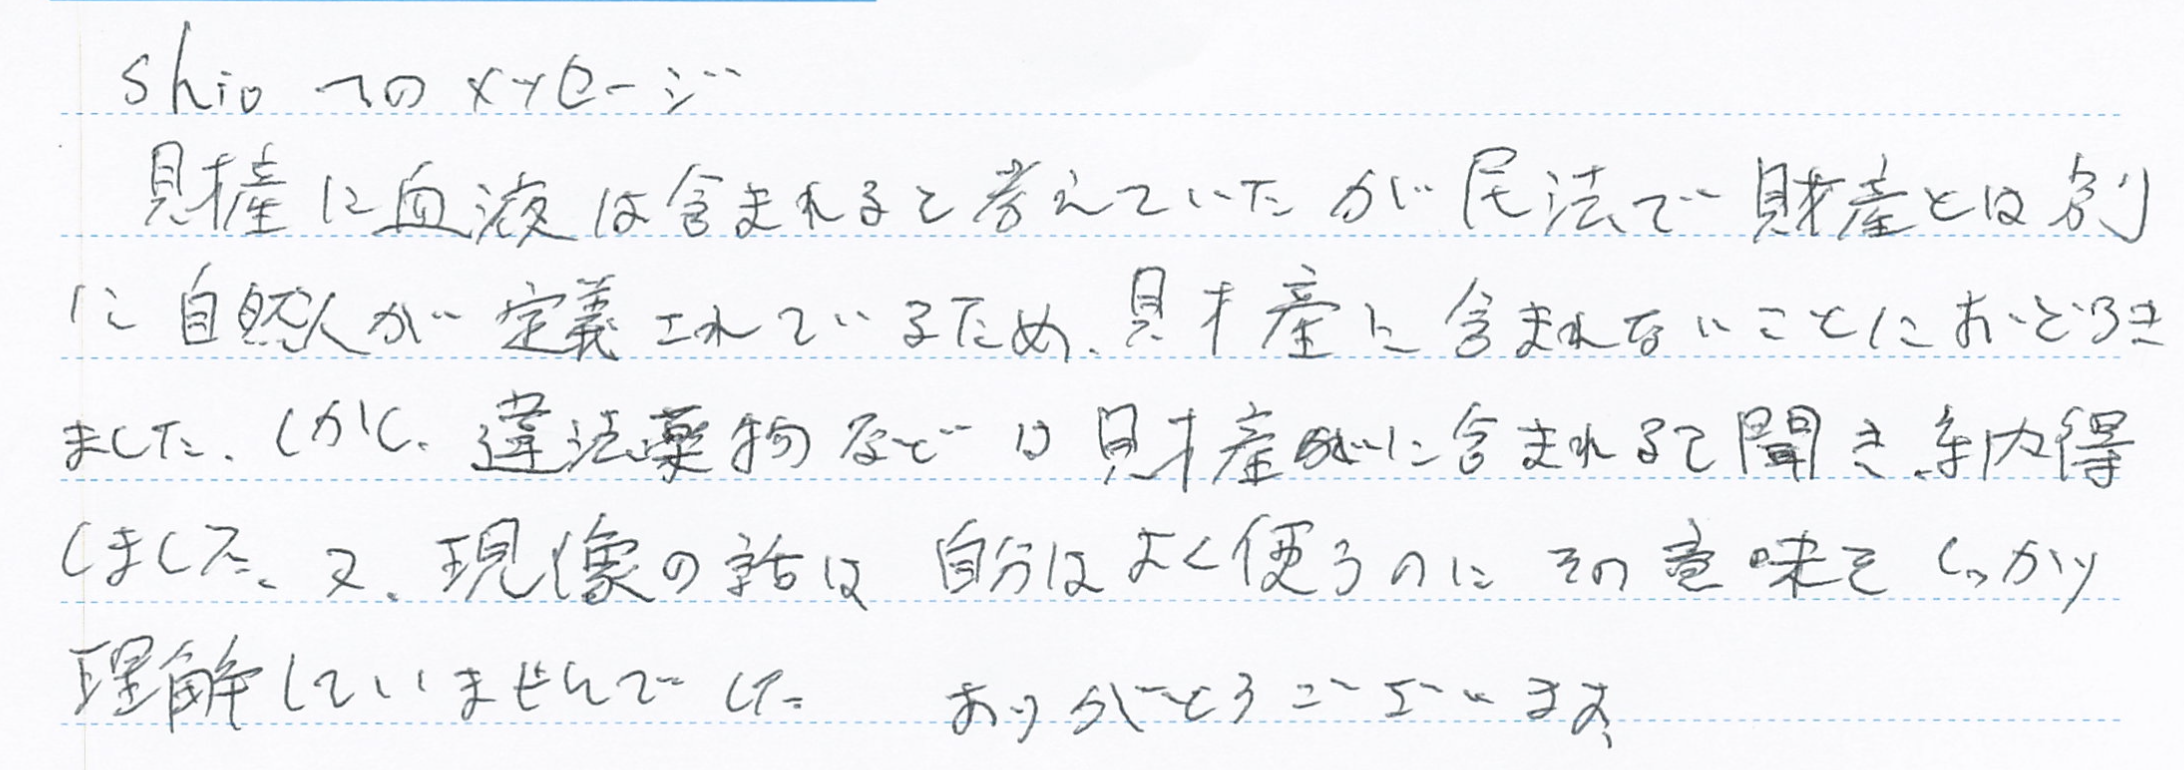 shioへのメッセージ
財産に血液は含まれると考えていたが民法で財産とは別
に自然人が定義されているため、財産に含まれないことにおどろき
ました。しかし、違法薬物などは財産に含まれると聞き、納得
しました。又、現像の話は自分はよく使うのにその意味をしっかり
理解していませんでした ありがとうございます